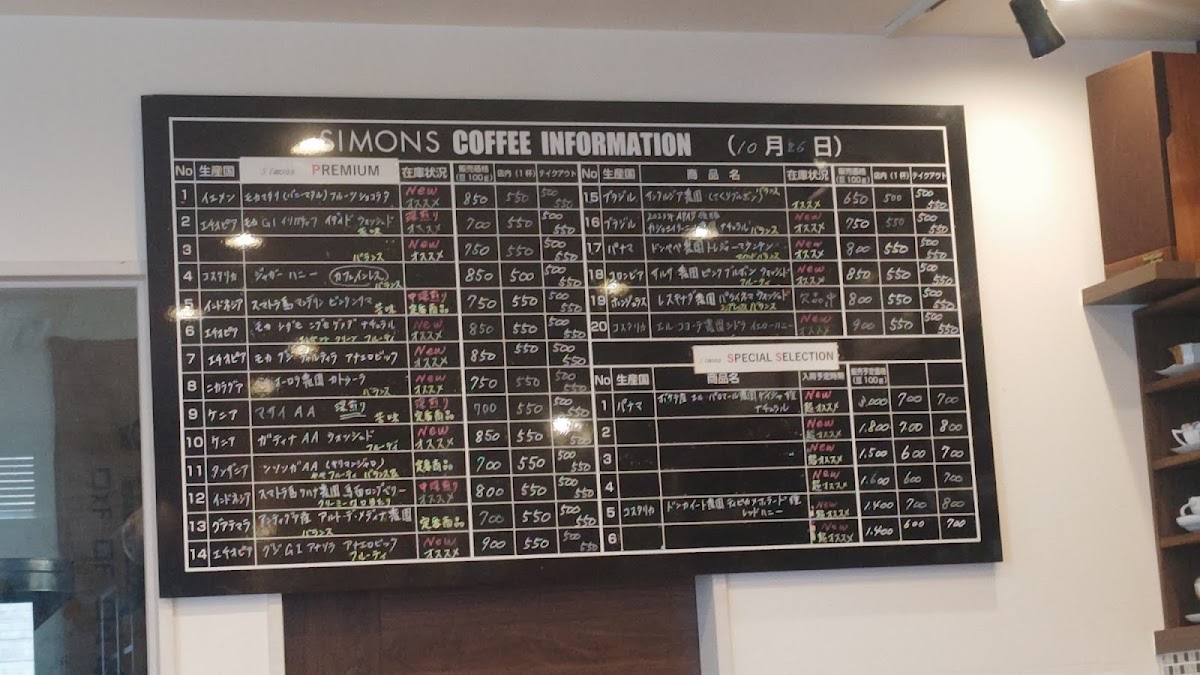 SIMONS COFFEE INFORMATION (10月26日)
No 生産国 Simons PREMIUM 在庫状況 販売価格(豆100g) 店内(1杯) テイクアウト
1 イエメン モカマタリ(バニーマタル) フルーツショコラタ New オススメ 850 550 500 550
2 エチオピア モカ G1 イリガチェフ イディド ウォッシュド 苦味 深煎り オススメ 700 550 500 550
3 バランス New オススメ 750 550 500 550
4 コスタリカ ジャガーハニー カフェインレス バランス 850 500 500 550
5 インドネシア スマトラ島 マンデリン ビンタンリマ 苦味 中深煎り 定番商品 750 550 500 550
6 エチオピア モカ シダモ ナチュラル New オススメ 850 550 500 550
7 エチオピア モカ グジ アナエロビック New オススメ 850 550 500 550
8 ニカラグア 農園 カトゥーラ バランス New オススメ 750 550 500 550
9 ケニア マサイ AA 深煎り 苦味 深煎り 定番商品 700 550 500 550
10 ケニア ガティナ AA ウォッシュド フルーティ New オススメ 850 550 500 550
11 タンザニア ンソンガ AA (キリマンジャロ) ややフルーティ バランス 定番商品 700 550 500 550
12 インドネシア スマトラ島 農園 ロングベリー 中深煎り オススメ 800 550 500 550
13 グアテマラ アンティグア産 アルト・デ・メディナ農園 バランス 定番商品 700 550 500 550
14 エチオピア グジ G1 アナソラ アナエロビック フルーティ New オススメ 900 550 500 550
No 生産国 商品名 在庫状況 販売価格(豆100g) 店内(1杯) テイクアウト
15 ブラジル 農園 バランス オススメ 650 500 500 550
16 ブラジル ナチュラル バランス New オススメ 750 550 500 550
17 パナマ ドンペペ農園 トレジャーマウンテン New オススメ 800 550 500 550
18 コロンビア 農園 ピンクブルボン ウォッシュド フルーティ New オススメ 850 550 500 550
19 ホンジュラス 農園 パライネマ ウォッシュド バランス 欠品中 800 550 500 550
20 コスタリカ エル コヨーテ農園 シドラ イエローハニー New オススメ 900 550 500 550
Simons SPECIAL SELECTION
No 生産国 商品名 入荷予定時期 販売予定価格(豆100g)
1 パナマ ボケテ産 エル・パロマール農園 ゲイシャ種 ナチュラル New 超オススメ 8.000 700 700
2 New 超オススメ 1.800 700 800
3 New 超オススメ 1.500 600 700
4 New 超オススメ 1.600 600 700
5 コスタリカ ドンカイート農園 ティピカメホラード種 レッドハニー New 超オススメ 1.400 700 800
6 New 超オススメ 1.400 600 700